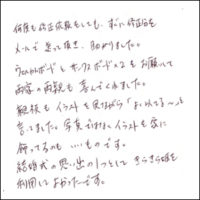 何度も修正依頼をしても、すぐに修正版を
メールで送って頂き、助かりました。
ウェルカムボードとサンクスボード×2をお願いして
両家の両親も喜んでくれました。
親族もイラストを見ながら「よくにてる~」と
言ってました。写真ではなくイラストを家に
飾ってるのも いいものです。
結婚式の思い出の1つとしてきらきら様を
利用してよかったです。